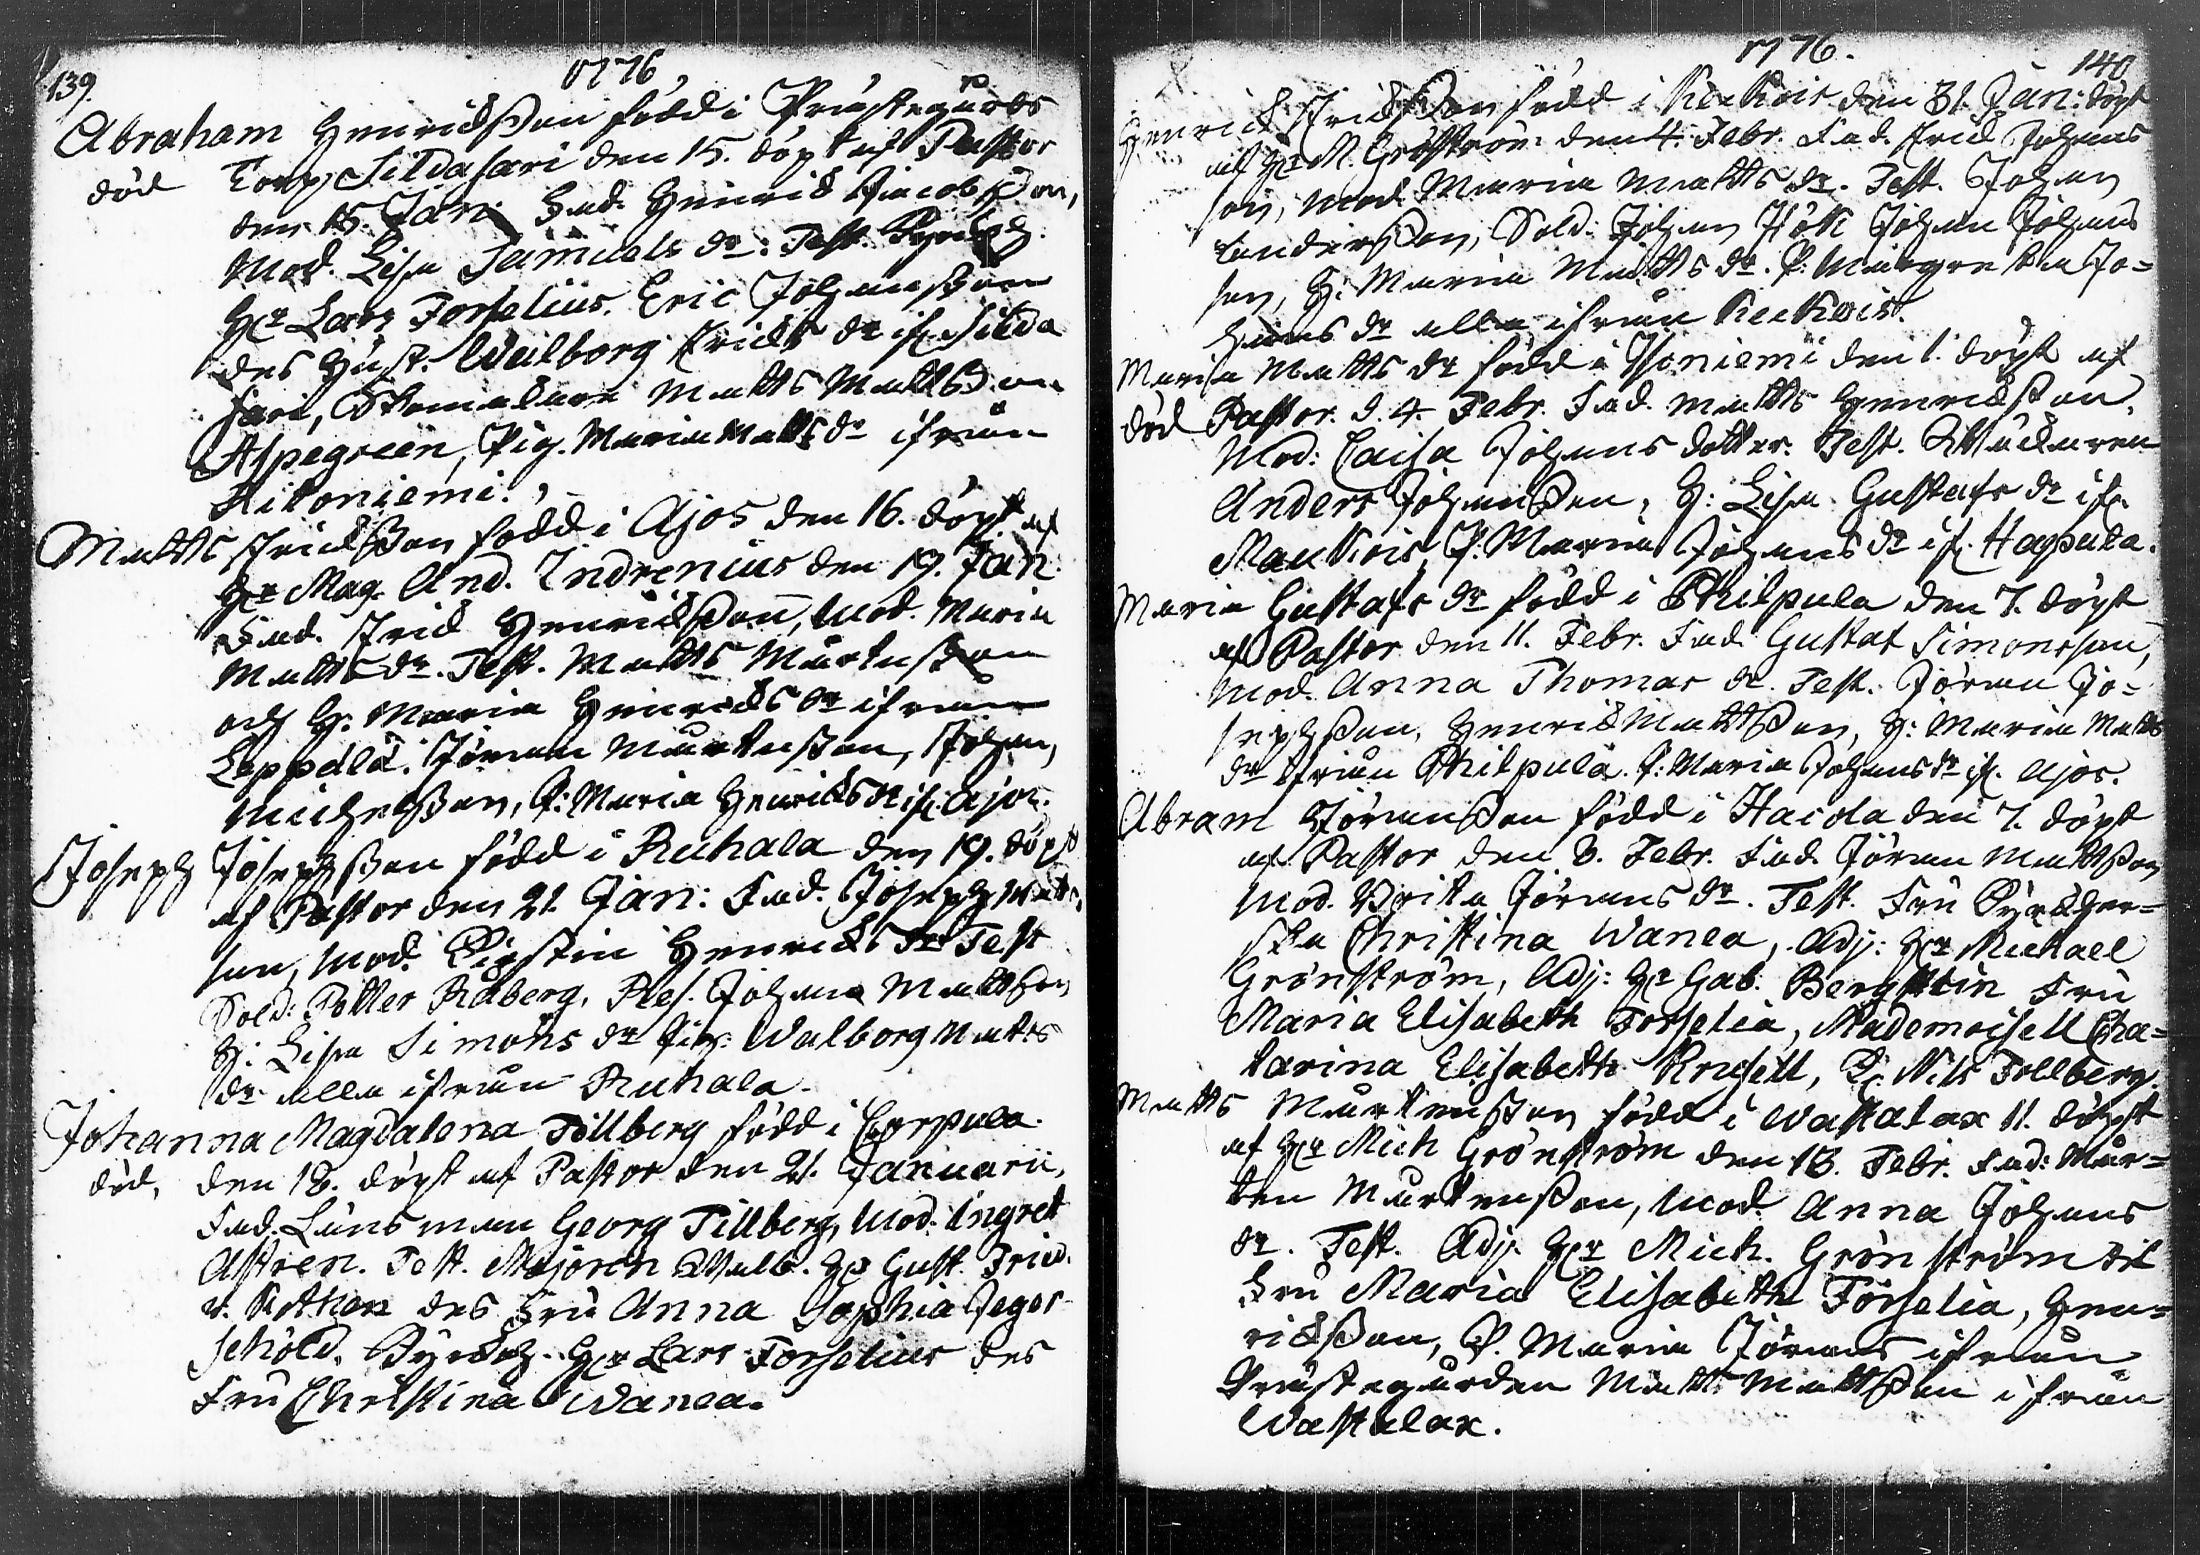 139.
1776
Abraham Henrichsson född i Prästegårds
död Torp, Sildasari den 15. döpt af Pastor
den 15. Jan. Fad. Henrich Jacobsson,
Mod. Lisa Samuels dr: Test.
Hr Lars Forselius. Eric Johansson
des Hust. Walborg Erichs dr if. Silda
sari, Skomakare Matts Mattsson
Aspegreen, Pig. Maria Matts dr ifrån
Hitoniemi.
Matts Erichsson född i Ajos den 16. döpt af
Hr Mag. And. Indrenius den 19. Jan.
Fad. Erich Henrichsson, Mod. Maria
Matts dr. Test. Matts Mårtensson
och H: Maria Henrichs dr ifrån
Leppälä. Jöran Mårtensson, Johan
Michelsson, P: Maria Henrichs dr if. Ajos.
Joseph Josephsson född i Ruhala den 19. döpt
af Pastor den 21. Jan: Fad. Joseph Matts
son, Mod. Kirstin Henrichs dr Test
Sold: Petter Råberg, Res. Johan Mattsson
H: Lisa Simons dr Pig: Walborg Matts
dr. alla ifrån Ruhala.
Johanna Magdalena Tillberg född i Corpula
död, den 18. döpt af Pastor den 21. Januarii,
Fad. Länsman Georg Tillberg, Mod. Ingret
Astren. Test. Majoren Wälb. Hr Gust. Fried.
v. Kothen des Fru Anna Sophia Jeger
schöld. Hr Lars Forselius des
Fru Christina Wanea.
1776.
140
Henrich Erichsson född i Keckois den 31. Jan: döpt
af Hr M. Grönström den 4. Febr. Fad. Erich Johans
son, Mod. Maria Matts dr. Test. Johan
Andersson, Sold: Johan Höök Johan Johans
son, H: Maria Matts dr. P: Margreta Jo=
hans dr alla ifrån Keckois.
Maria Matts dr född i Isoniemi den 1. döpt af
död Pastor d. 4 Febr. Fad. Matts Henrichsson.
Mod: Caisa Johans dotter. Test.
Anders Johansson, H: Lisa Gustafs dr ifr.
Mauckois, P: Maria Johans dr if. Hagpuka.
Maria Gustafs dr född i Philpula den 7. döpt
af Pastor den 11. Febr. Fad. Gustaf Simonsson,
Mod. Anna Thomas dr. Test. Jöran Jo=
sephsson, Henrich Mattsson, H: Maria Matts
dr ifrån Philpula. P: Maria Johans dr if. Ajos.
Abram Jöransson född i Hacola den 7. döpt
af Pastor den 8. Febr. Fad. Jöran Mattsson
Mod. Brita Jörans dr. Test. Fru
Christina Wanea, Adj: Hr Michael
Grönström, Adj: Hr Gab. Bergstein Fru
Maria Elisabeth Forselia, Mademoisell Cha=
tarina Elisabeth Krusell, Nils Follberg.
Matts Mårtensson född i Wattalax 11. döpt
af Hr Mich Grönström den 18. Febr. Fad: Mår=
ten Mårtensson, Mod. Anna Johans
dr. Test. Adj. Hr Mich. Grönström
Fru Maria Elisabeth Forselia, Hen=
richsson, P. Maria Jörans ifrån
Prästegården Matts Mattsson ifrån
Wattalax.